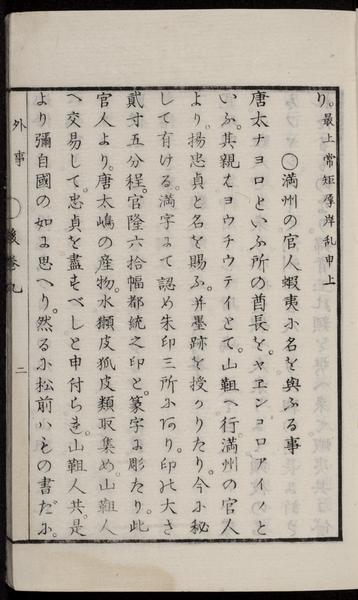 り。最上常矩厚岸乱申上
〇満州の官人蝦夷小名を與ふる事
唐太ナヨロといふ所の酋長を。ヤエンコロアイノと
いふ。其親をヨウチウテイとて。山靼へ行満州の官人
より。揚忠貞と名を賜ふ。并墨跡を授かりたり。今に秘
して有ける。満字にて認め朱印三所にあり。印の大さ
貳寸五分程。官隆六拾幅都統之印と。篆字に彫たり。此
官人より。唐太嶋の産物水獺皮狐皮類取集め。山靼人
へ交易して。忠貞を盡すべしと申付らる。山靼人共。是
より彌自國の如に思へり。然るに松前ハその書だに。
外事 〇 後巻九 二